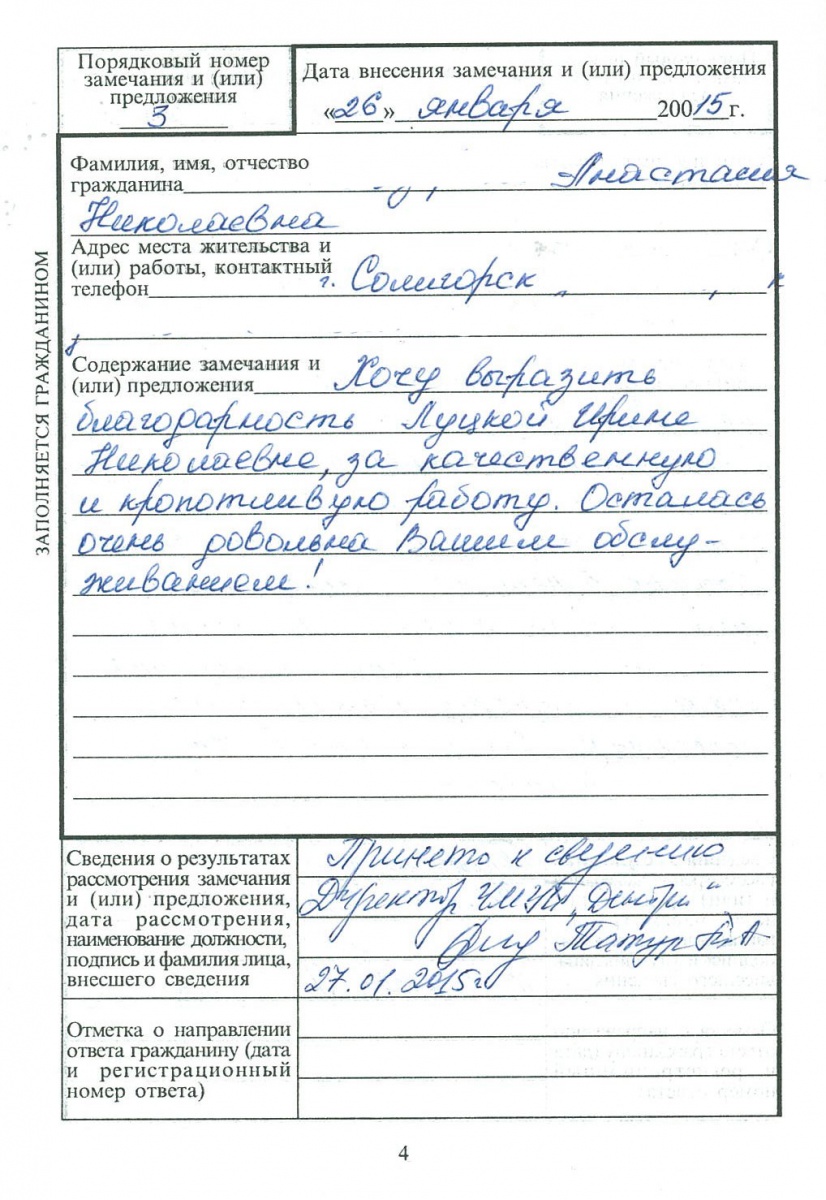 Порядковый номер
замечания и (или)
предложения
3
Дата внесения замечания и (или) предложения
«26» января 20015 г.
ЗАПОЛНЯЕТСЯ ГРАЖДАНИНОМ
Фамилия, имя, отчество
гражданина Анастасия
Николаевна
Адрес места жительства и
(или) работы, контактный
телефон г. Солигорск
Содержание замечания и
(или) предложения Хочу выразить
благодарность Луцкой Ирине
Николаевне, за качественную
и кропотливую работу. Осталась
очень довольна Вашим обслу-
живанием!
Сведения о результатах
рассмотрения замечания
и (или) предложения,
дата рассмотрения,
наименование должности,
подпись и фамилия лица,
внесшего сведения
Принето к сведению
Директор ЧМУП
Татур
27.01.2015г
Отметка о направлении
ответа гражданину (дата
и регистрационный
номер ответа)
4